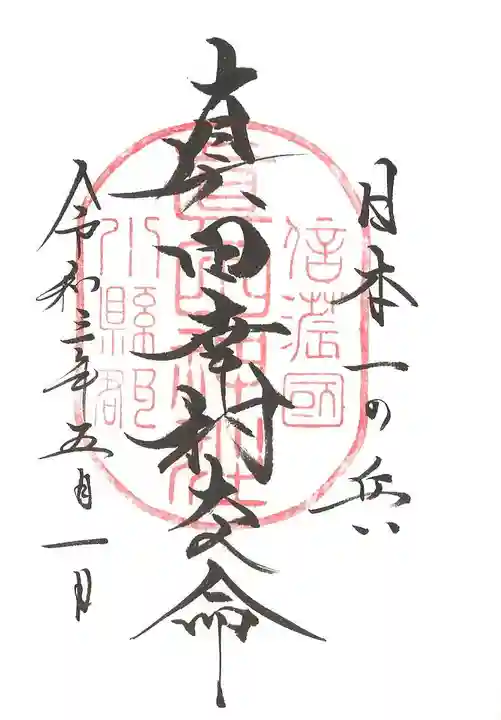 日本一の兵
信濃國
真田幸村命
眞田神社
小縣郡
令和三年五月一日